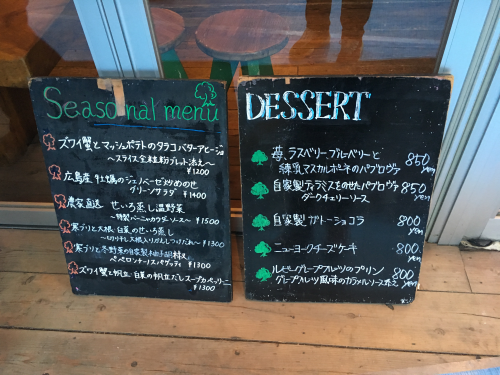 Seasonal menu
ズワイ蟹とマッシュポテトのタラコバターアヒージョ
～スライス全粒粉ブレット添え～
¥1200
広島産 牡蠣のジェノベーゼ炒めのせ
グリーンサラダ ¥1400
農家直送 せいろ蒸し温野菜
～特製バーニャカウダソース～ ¥1500
寒ブリと大根 白菜のせいろ蒸し
～切り干し大根入りだしつけだれ～ ¥1300
寒ブリと冬野菜の自家製柚子胡椒
ペペロンチーノスパゲッティ ¥1300
ズワイ蟹と帆立 白菜の帆立だしスープカペッリーニ
¥1300
DESSERT
苺、ラズベリー、ブルーベリーと 850
練乳マスカルポーネのパブロヴァ yen
自家製ティラミスをのせたパブロヴァ 850
ダークチェリーソース yen
自家製 ガトーショコラ 800
yen
ニューヨークチーズケーキ 800
yen
ルビーグレープフルーツのプリン 800
グレープフルーツ風味のカラメルソース添え yen